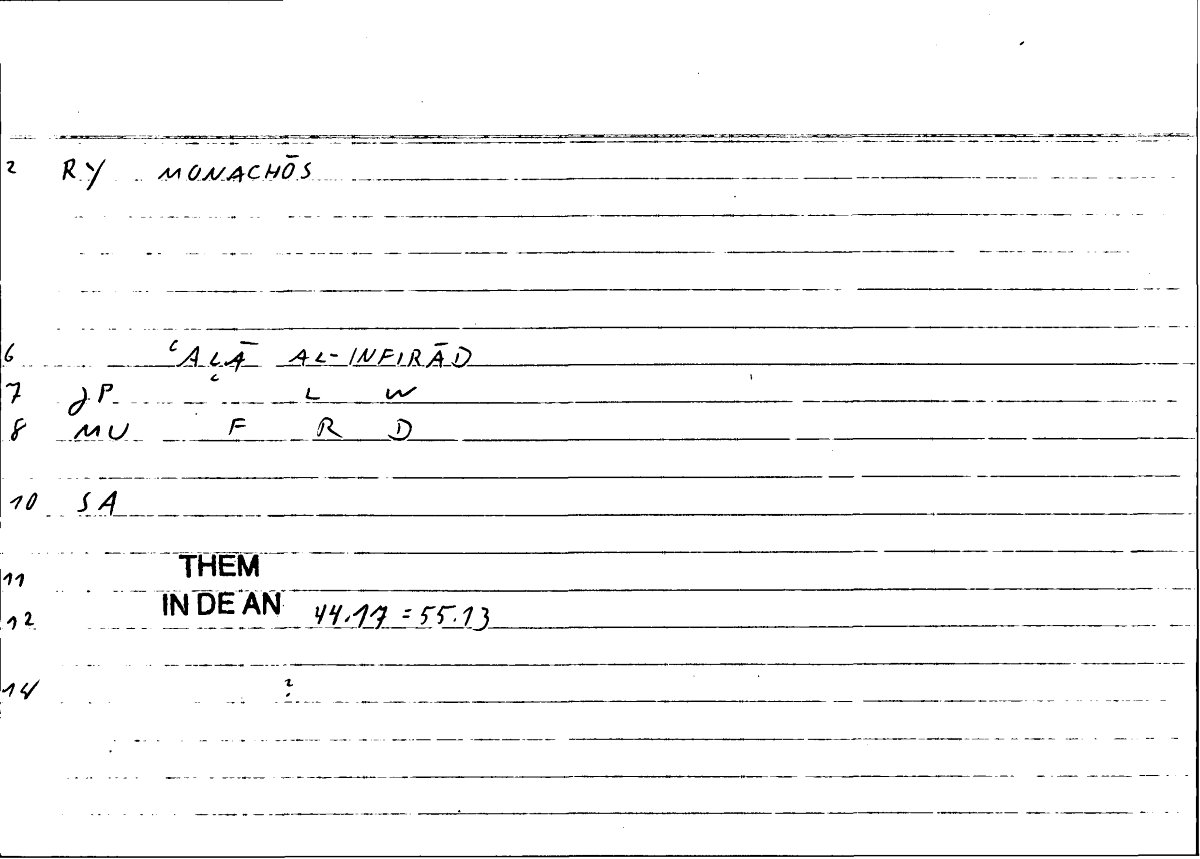 2 RY MONACHŌS
6 ʿALĀ AL-INFIRĀD
7 JP ʿ L W
8 MU F R D
10 SA
11 THEM
12 IN DE AN 44.17 = 55.13
14 ?